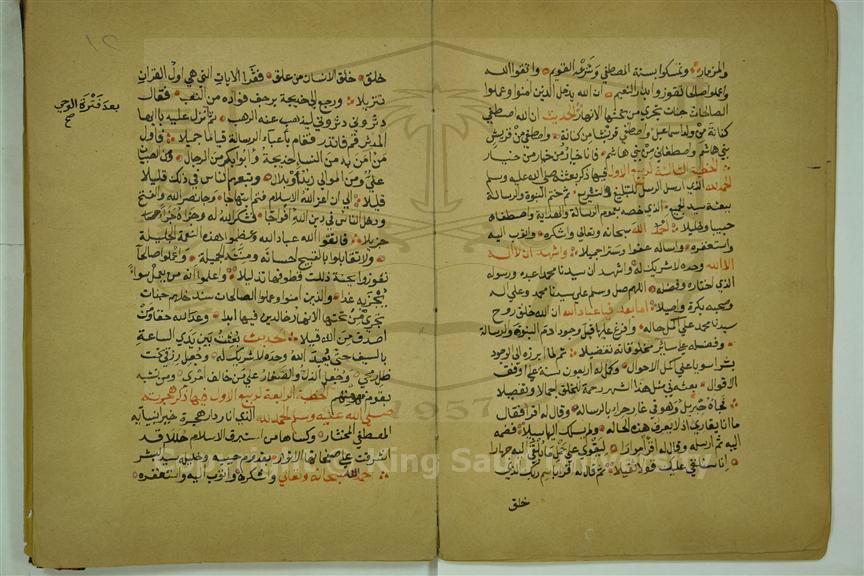 والمزمار وتمسكوا بسنة المصطفى وشرعه القويم واتقوا الله
واعملوا صالحا تفوزوا بدار النعيم ان الله يدخل الذين امنوا وعملوا
الصالحات جنات تجري من تحتها الانهار الحديث ان الله اصطفى
كنانة من ولد اسماعيل واصطفى قريشا من كنانة واصطفى من قريش
بني هاشم واصطفاني من بني هاشم فانا خيار من خيار من خيار
الخطبة الثالثة لربيع الاول فيها ذكر بعثته صلى الله عليه وسلم
الحمد لله الذي ارسل الرسل للتبليغ ثم ختم النبوة والرسالة
ببعثة سيد الجميع الذي خصه بعموم الرسالة والهداية واصطفاه
حبيبا وخليلا احمد الله سبحانه وتعالى واشكره واتوب اليه
واستغفره واساله عفوا وسترا جميلا واشهد ان لا اله
الا الله وحده لا شريك له واشهد ان سيدنا محمدا عبده ورسوله
الذي اختاره وفضله اللهم صل وسلم على سيدنا محمد وعلى اله
وصحبه بكرة واصيلا اما بعد فيا عباد الله ان الله خلق روح
سيدنا محمد على اكمل حاله وافرغ عليها قبل وجود ادم النبوة والرسالة
وفضله على سائر مخلوقاته تفضيلا ثم لما ابرزه الى الوجود
بشرا سويا على اكمل الاحوال وكمل له اربعون سنة على اوفق
الاقوال بعثه في مثل هذا الشهر رحمة للخلق اجمالا وتفصيلا
فجاءه جبريل وهو في غار حراء بالرسالة وقال له اقرا فقال
ما انا بقاري اذ لا يعرف هذه الحاله ولم يسلك اليها سبيلا فضمه
اليه ثم ارسله وقال له اقرا مرارا ليقوى على حمل ما يلقى اليه جهارا
انا سنلقي عليك قولا ثقيلا ثم قال له اقرا باسم ربك الذي
خلق
خلق خلق الانسان من علق فقرا الايات التي هي اول القران
تنزيلا ورجع الى خديجة يرجف فؤاده من التعب فقال
دثروني دثروني ليذهب عنه الرهب فانزل عليه يا ايها
المدثر قم فانذر فقام باعباء الرسالة قياما جميلا فاول
من امن به من النساء خديجة وابو بكر من الرجال ومن الصبيان
علي ومن الموالي زيد وبلال وتبعهم الناس في ذلك قليلا
قليلا الى ان اعز الله الاسلام وجاء نصر الله والفتح
ودخل الناس في دين الله افواجا
جزيلا فاتقوا الله عباد الله وعظموا هذه النعمة الجليلة
ولا تقابلوا بالقبيح احسانه ومننه الجميلة واعملوا صالحا
تفوزوا بجنة ذللت قطوفها تذليلا واعلموا انه من يعمل سوأ
يجز به غدا والذين امنوا وعملوا الصالحات سندخلهم جنات
تجري من تحتها الانهار خالدين فيها ابدا وعد الله حقا ومن
اصدق من الله قيلا الحديث بعثت بين يدي الساعة
بالسيف حتى يعبد الله وحده لا شريك له وجعل رزقي تحت
ظل رمحي وجعل الذل والصغار على من خالف امري ومن تشبه
بقوم فهو منهم الخطبة الرابعة لربيع الاول فيها ذكر هجرته
صلى الله عليه وسلم الحمد لله الذي انار دار هجرة خير انبيائه
المصطفى المختار وكساها من استبرق الاسلام حللا قد
اشرقت على صفحاتها الانوار بقدوم حبيبه وخليله سيد البشر
احمد الله سبحانه وتعالى واشكره واتوب اليه واستغفره
بعد فترة الوحي
صح
1957
Copyright © King Saud University